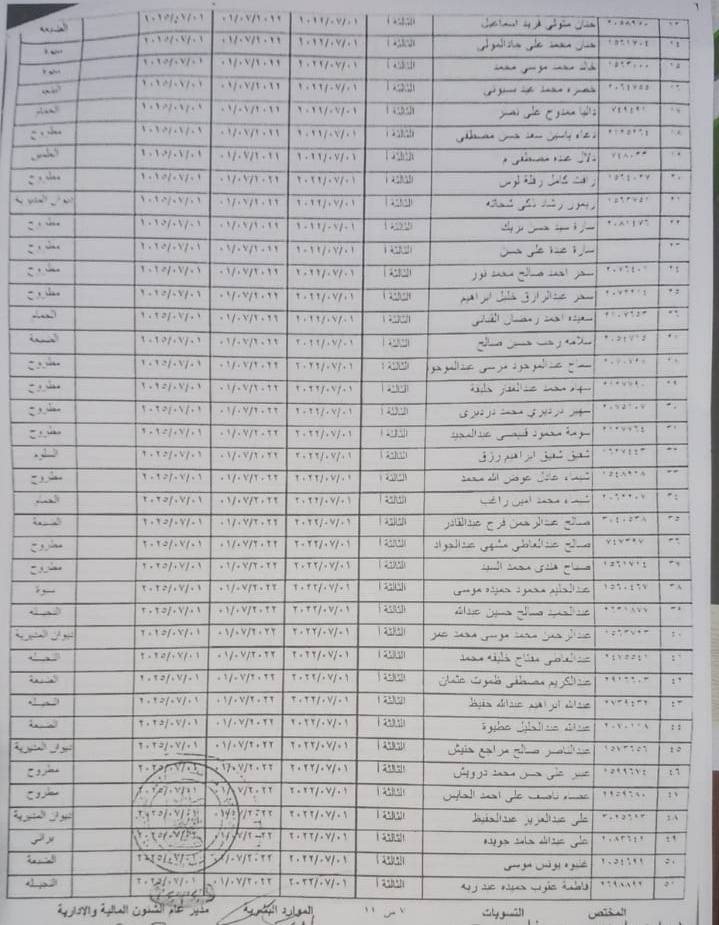 ٦
١٣ ٢٠٥٨٩٧٠ حنان متولى فريد اسماعيل الثالثة أ ٢٠٢٢/٠٧/٠١ ٠١/٠٧/٢٠٢٢ ٢٠٢٥/٠٧/٠١ الضبعة
١٤ ١٥٦١٧٠٤ حنان محمد على جادالمولى الثالثة أ ٢٠٢٢/٠٧/٠١ ٠١/٠٧/٢٠٢٢ ٢٠٢٥/٠٧/٠١ سيوة
١٥ ١٥٦٣٠٠٠ خالد محمد موسى محمد الثالثة أ ٢٠٢٢/٠٧/٠١ ٠١/٠٧/٢٠٢٢ ٢٠٢٥/٠٧/٠١ سيوة
١٦ ٢٠٦٤٧٥٥ خضره محمد عيد بسيونى الثالثة أ ٢٠٢٢/٠٧/٠١ ٠١/٠٧/٢٠٢٢ ٢٠٢٥/٠٧/٠١
١٧ ٧٤٩٤٩٦ داليا ممدوح على نصر الثالثة أ ٢٠٢٢/٠٧/٠١ ٠١/٠٧/٢٠٢٢ ٢٠٢٥/٠٧/٠١ الحمام
١٨ دعاء ياسين سعد حسن مصطفى الثالثة أ ٢٠٢٢/٠٧/٠١ ٠١/٠٧/٢٠٢٢ ٢٠٢٥/٠٧/٠١ مطروح
١٩ دلال عبده مصطفى م الثالثة أ ٢٠٢٢/٠٧/٠١ ٠١/٠٧/٢٠٢٢ ٢٠٢٥/٠٧/٠١ العلمين
٢٠ ١٥٦٤٠٢٧ رافت كامل رفلة لوس الثالثة أ ٢٠٢٢/٠٧/٠١ ٠١/٠٧/٢٠٢٢ ٢٠٢٥/٠٧/٠١ مطروح
٢١ ١٥٦٣٧٥١ ريمون رشاد زكى شحاته الثالثة أ ٢٠٢٢/٠٧/٠١ ٠١/٠٧/٢٠٢٢ ٢٠٢٥/٠٧/٠١ ديوان المديرية
٢٢ ٢٠٨١٤٧٦ سارة سيد حسن بريك الثالثة أ ٢٠٢٢/٠٧/٠١ ٠١/٠٧/٢٠٢٢ ٢٠٢٥/٠٧/٠١ مطروح
٢٣ سارة عبدة على حسن الثالثة أ ٢٠٢٢/٠٧/٠١ ٠١/٠٧/٢٠٢٢ ٢٠٢٥/٠٧/٠١ مطروح
٢٤ ٢٠٧٦٤٠١ سحر احمد صالح محمد نور الثالثة أ ٢٠٢٢/٠٧/٠١ ٠١/٠٧/٢٠٢٢ ٢٠٢٥/٠٧/٠١ مطروح
٢٥ سحر عبدالرازق خليل ابراهيم الثالثة أ ٢٠٢٢/٠٧/٠١ ٠١/٠٧/٢٠٢٢ ٢٠٢٥/٠٧/٠١ مطروح
٢٦ ٢١٠٧٦٥٣ سعيده احمد رمضان القنانى الثالثة أ ٢٠٢٢/٠٧/٠١ ٠١/٠٧/٢٠٢٢ ٢٠٢٥/٠٧/٠١ الحمام
٢٧ ٢٠٥٤٧١٥ سلامه رحب حسين صالح الثالثة أ ٢٠٢٢/٠٧/٠١ ٠١/٠٧/٢٠٢٢ ٢٠٢٥/٠٧/٠١ الضبعة
٢٨ سماح عبدالموجود مرسى عبدالموجو الثالثة أ ٢٠٢٢/٠٧/٠١ ٠١/٠٧/٢٠٢٢ ٢٠٢٥/٠٧/٠١ مطروح
٢٩ سهام محمد عبدالغفار خليفة الثالثة أ ٢٠٢٢/٠٧/٠١ ٠١/٠٧/٢٠٢٢ ٢٠٢٥/٠٧/٠١ مطروح
٣٠ ٢٠٧٥١٠٧ سهير درديري محمد درديرى الثالثة أ ٢٠٢٢/٠٧/٠١ ٠١/٠٧/٢٠٢٢ ٢٠٢٥/٠٧/٠١ مطروح
٣١ سومة محمود قبيصى عبدالمجيد الثالثة أ ٢٠٢٢/٠٧/٠١ ٠١/٠٧/٢٠٢٢ ٢٠٢٥/٠٧/٠١ مطروح
٣٢ ١٦٢٧٤٤٣ شفيق شفيق ابراهيم رزق الثالثة أ ٢٠٢٢/٠٧/٠١ ٠١/٠٧/٢٠٢٢ ٢٠٢٥/٠٧/٠١ السلوم
٣٣ ١٥٤٨٩٢٨ شيماء عادل عوض الله محمد الثالثة أ ٢٠٢٢/٠٧/٠١ ٠١/٠٧/٢٠٢٢ ٢٠٢٥/٠٧/٠١ مطروح
٣٤ ٢٠٦٢٢٠٧ شيماء محمد امين راغب الثالثة أ ٢٠٢٢/٠٧/٠١ ٠١/٠٧/٢٠٢٢ ٢٠٢٥/٠٧/٠١ الحمام
٣٥ ٣٠٤٠٥٣٨ صالح عبدالرحمن فرج عبدالقادر الثالثة أ ٢٠٢٢/٠٧/٠١ ٠١/٠٧/٢٠٢٢ ٢٠٢٥/٠٧/٠١ الضبعة
٣٦ ٧٤٧٣٩٧ صالح عبدالعاطى مشهى عبدالجواد الثالثة أ ٢٠٢٢/٠٧/٠١ ٠١/٠٧/٢٠٢٢ ٢٠٢٥/٠٧/٠١ مطروح
٣٧ ١٥٦١٧١٤ صباح هندى محمد السيد الثالثة أ ٢٠٢٢/٠٧/٠١ ٠١/٠٧/٢٠٢٢ ٢٠٢٥/٠٧/٠١ مطروح
٣٨ ١٥٦٠٤٦٧ عبدالحليم محمود حميده موسى الثالثة أ ٢٠٢٢/٠٧/٠١ ٠١/٠٧/٢٠٢٢ ٢٠٢٥/٠٧/٠١ سيوة
٣٩ ٢٦٣١٨٧٧ عبدالحميد صالح حسين عبدالله الثالثة أ ٢٠٢٢/٠٧/٠١ ٠١/٠٧/٢٠٢٢ ٢٠٢٥/٠٧/٠١ النجيله
٤٠ ١٥٦٣٧٩٣ عبدالرحمن محمد موسى محمد عمر الثالثة أ ٢٠٢٢/٠٧/٠١ ٠١/٠٧/٢٠٢٢ ٢٠٢٥/٠٧/٠١ ديوان المديرية
٤١ ٢٤٧٥٥٤١ عبدالعاصى مفتاح خليفه محمد الثالثة أ ٢٠٢٢/٠٧/٠١ ٠١/٠٧/٢٠٢٢ ٢٠٢٥/٠٧/٠١ النجيله
٤٢ ٢٩١٦٦٠٣ عبدالكريم مصطفى ظموت عثمان الثالثة أ ٢٠٢٢/٠٧/٠١ ٠١/٠٧/٢٠٢٢ ٢٠٢٥/٠٧/٠١ الضبعة
٤٣ ٢٧٣٩٤٣٢ عبدالله ابراهيم عبدالله حفيظ الثالثة أ ٢٠٢٢/٠٧/٠١ ٠١/٠٧/٢٠٢٢ ٢٠٢٥/٠٧/٠١ النجيله
٤٤ ٢٠٧٠١١٨ عبدالله عبدالجليل عطيوة الثالثة أ ٢٠٢٢/٠٧/٠١ ٠١/٠٧/٢٠٢٢ ٢٠٢٥/٠٧/٠١ الضبعة
٤٥ ١٥٧٣٦٥٦ عبدالناصر صالح مراجع حنيش الثالثة أ ٢٠٢٢/٠٧/٠١ ٠١/٠٧/٢٠٢٢ ٢٠٢٥/٠٧/٠١ ديوان المديرية
٤٦ ١٥٩٩٦٧٤ عبير على حسن محمد درويش الثالثة أ ٢٠٢٢/٠٧/٠١ ٠١/٠٧/٢٠٢٢ ٢٠٢٥/٠٧/٠١ مطروح
٤٧ ٢٩٥٩٦٨٠ عصاء ناصف على احمد الحابس الثالثة أ ٢٠٢٢/٠٧/٠١ ٠١/٠٧/٢٠٢٢ ٢٠٢٥/٠٧/٠١ مطروح
٤٨ ٣٠٢٥٦٨٣ على عبدالعزيز عبدالحفيظ الثالثة أ ٢٠٢٢/٠٧/٠١ ٠١/٠٧/٢٠٢٢ ٢٠٢٥/٠٧/٠١ ديوان المديرية
٤٩ ٢٠٨٣٦٤٢ على عبدالله حامد جويده الثالثة أ ٢٠٢٢/٠٧/٠١ ٠١/٠٧/٢٠٢٢ ٢٠٢٥/٠٧/٠١ برانى
٥٠ ٢٠٥٤٦٢١ غنيوه يونس موسى الثالثة أ ٢٠٢٢/٠٧/٠١ ٠١/٠٧/٢٠٢٢ ٢٠٢٥/٠٧/٠١ الضبعة
٥١ ٢٦٩٨٨٩٢ فاطمة عقوب حميده عبد ربه الثالثة أ ٢٠٢٢/٠٧/٠١ ٠١/٠٧/٢٠٢٢ ٢٠٢٥/٠٧/٠١ النجيله
المختص التسويات ٧ من ١١ الموارد البشرية مدير عام الشئون المالية والادارية